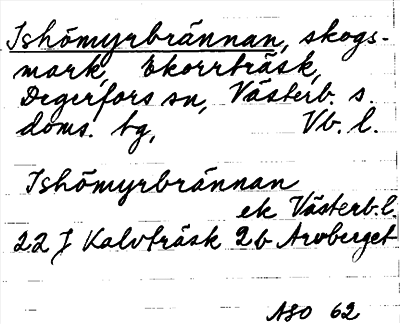 Ishömyrbrännan, skogs-
mark, Ekorrträsk,
Degerfors sn, Västerb. s.
doms. tg, Vb. l.
Ishömyrbrännan
ek Västerb. l.
22 J Kalvträsk 2b Arvberget
ASO 62